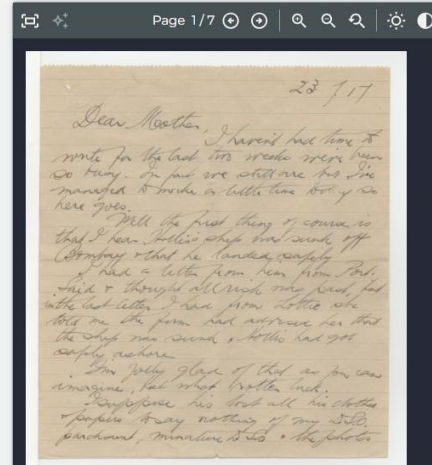 Page 1/7
23/7/17
Dear Mother,
I haven't had time to
write for the last two weeks we've been
so busy. In fact we still are but I've
managed to make a little time today so
here goes.
Well the first thing of course is
that I hear Hollis's ship was sunk off
Bombay & that he landed safely
I had a letter from him from Port
Said & thought all risk was past, but
in the last letter I had from Lottie she
told me the firm had advised her that
the ship was sunk & Hollis had got
safely ashore
I'm jolly glad of that as you can
imagine, but what rotten luck.
I suppose his lost all his clothes
& papers to say nothing of my D.S.O.
parchment, miniature D.S.O. & the photos